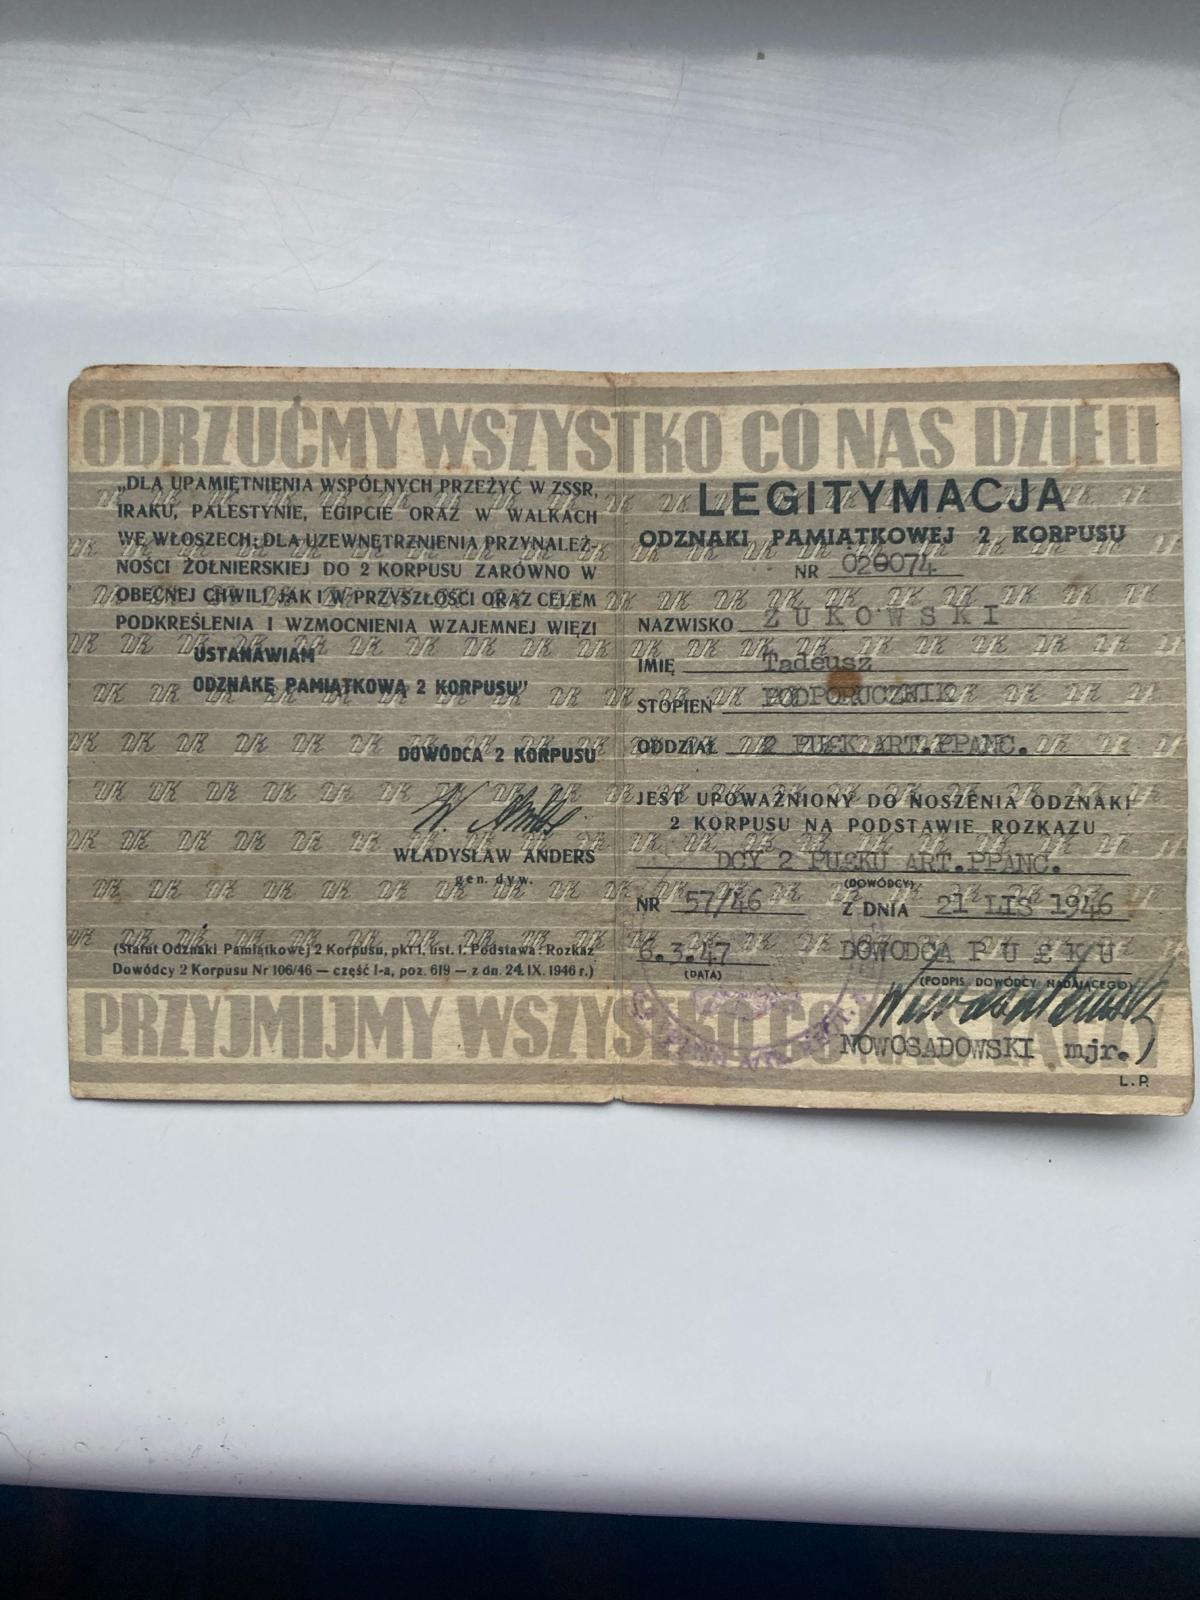 ODRZUĆMY WSZYSTKO CO NAS DZIELI
„DLA UPAMIĘTNIENIA WSPÓLNYCH PRZEŻYĆ W ZSSR,
IRAKU, PALESTYNIE, EGIPCIE ORAZ W WALKACH
WE WŁOSZECH; DLA UZEWNĘTRZNIENIA PRZYNALEŻ-
NOŚCI ŻOŁNIERSKIEJ DO 2 KORPUSU ZARÓWNO W
OBECNEJ CHWILI JAK I W PRZYSZŁOŚCI ORAZ CELEM
PODKREŚLENIA I WZMOCNIENIA WZAJEMNEJ WIĘZI
USTANAWIAM
ODZNAKĘ PAMIĄTKOWĄ 2 KORPUSU”
DOWÓDCA 2 KORPUSU
W. Anders
WŁADYSŁAW ANDERS
gen. dyw.
(Statut Odznaki Pamiątkowej 2 Korpusu, pkt 1. ust. 1. Podstawa: Rozkaz
Dowódcy 2 Korpusu Nr 106/46 — część I-a, poz. 619 — z dn. 24. IX. 1946 r.)
LEGITYMACJA
ODZNAKI PAMIĄTKOWEJ 2 KORPUSU
NR 020074
NAZWISKO ŻUKOWSKI
IMIĘ Tadeusz
STOPIEŃ PODPORUCZNIK
ODDZIAŁ 2 PUŁK ART.PPANC.
JEST UPOWAŻNIONY DO NOSZENIA ODZNAKI
2 KORPUSU NA PODSTAWIE ROZKAZU
DCY 2 PUŁKU ART.PPANC.
(DOWÓDCY)
NR 57/46 Z DNIA 21 LIS 1946
6.3.47 DOWÓDCA PUŁKU
(DATA) (PODPIS DOWÓDCY NADAJĄCEGO)
NOWOSADOWSKI mjr.
L. P.
PRZYJMIJMY WSZYSTKO CO NAS